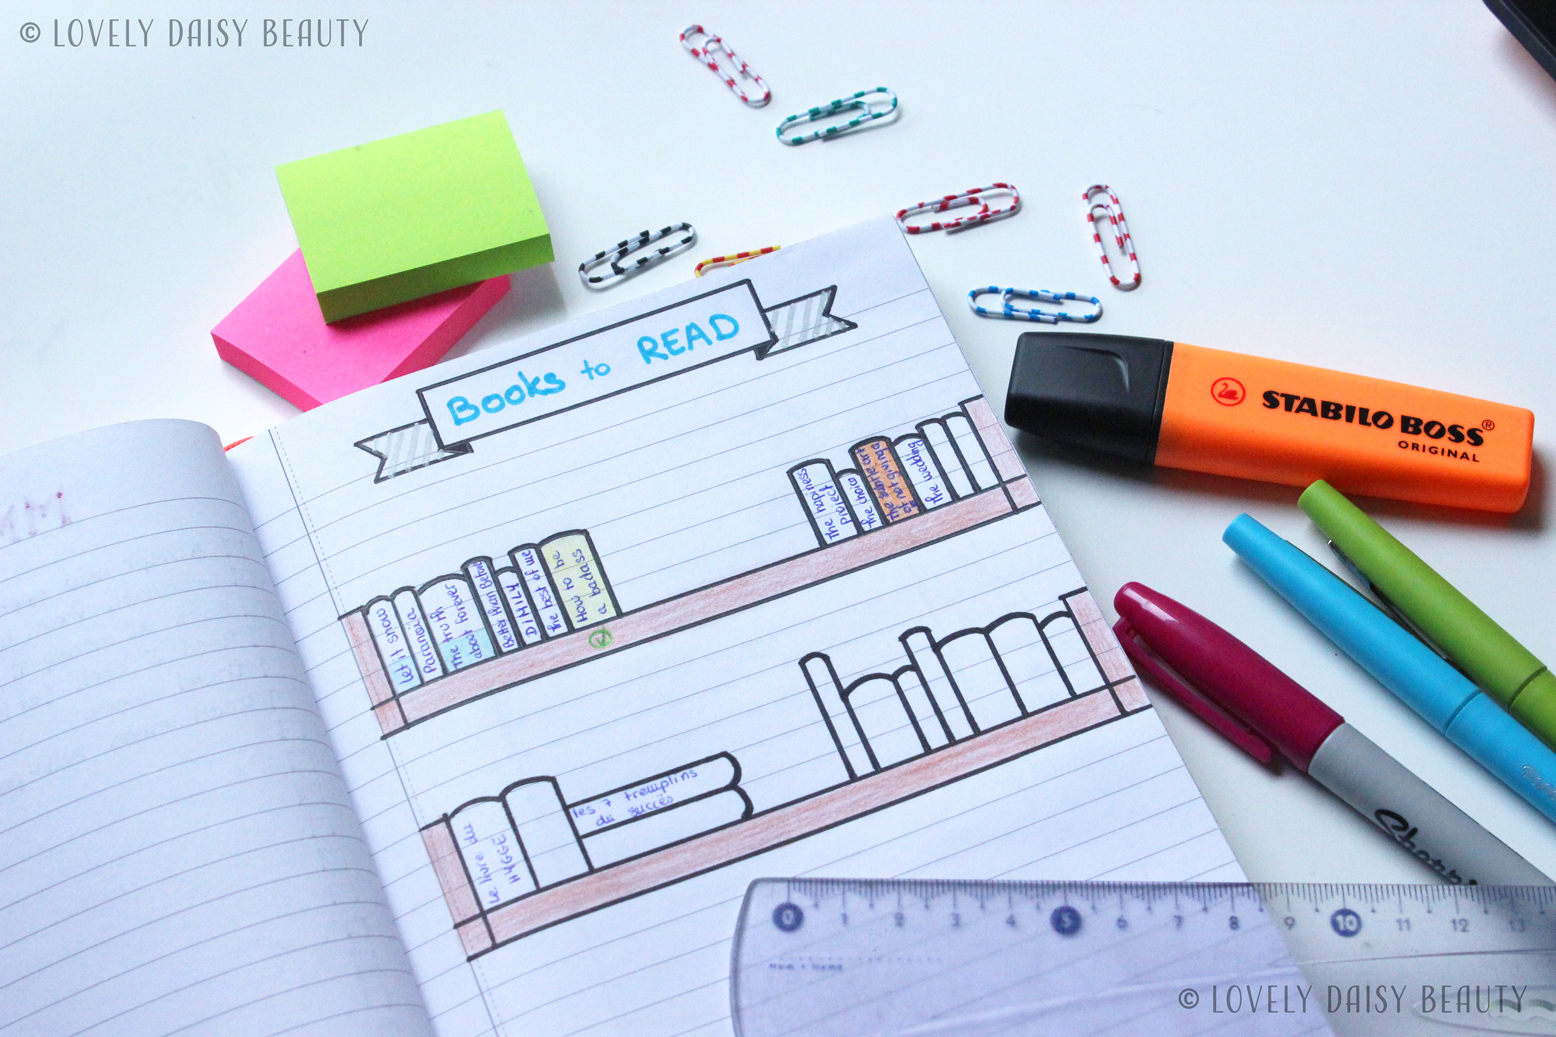 © LOVELY DAISY BEAUTY
Books to READ
Let it snow
Paranoïa
the truth
about forever
Better than Before
DIMILY
the best of me
How to be
a badass
The hapiness
Project
the choice
the subtle art
of not giving
the wedding
Le livre du
HYGGE
les 7 tremplins
du succès
STABILO BOSS®
ORIGINAL
Sharpie
0 1 2 3 4 5 6 7 8 9 10 11 12 13
© LOVELY DAISY BEAUTY